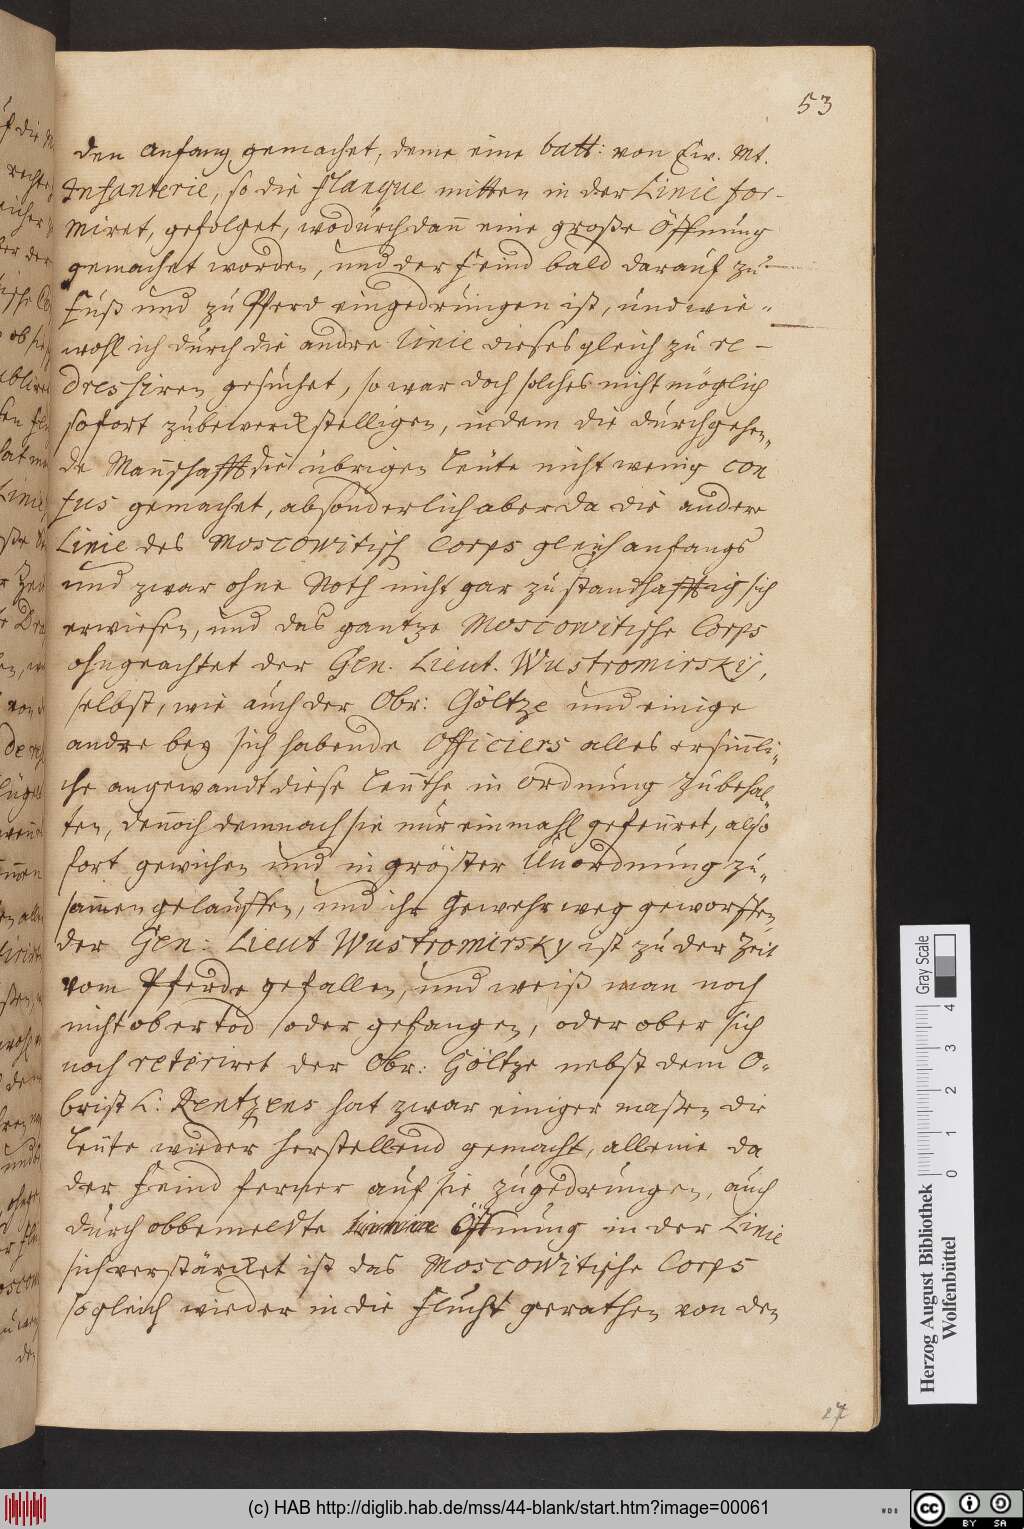 53
den anfang gemachet, deme eine batt: von Ew. Mt.
Infanterie, so die flanque mitten in der Linie for-
miret, gefolget, wodurch dañ eine große Öffnung
gemachet worden, und der Feind bald darauf zu
Fuß und zu Pferd eingedrungen ist, und wie-
wohl ich durch die andre linie dieses gleich zu re-
dressiren gesuchet, so war doch solches nicht möglich
sofort zubewerckstelligen, indem die durchgehen-
de Mañschafft die übrigen leüte nicht wenig con
fus gemachet, absonderlich aber da die andere
Linie des Moscowitisch Corps gleich anfangs
und zwar ohne Noth nicht gar zu standhafftig sich
erwiesen, und das gantze Moscowitische Corps
ohngeachtet der Gen. Lieut. Wustromirskij,
selbst, wie auch der Obr: Göltze und einige
andre bey sich habende Officiers alles ersiñli-
che angewandt diese leuthe in ordnung zubehal-
ten, deñoch demnach sie nur einmahl gefeuret, also
fort gewichen und in gröster Unordnung zu-
sam̃en gelauffen, und ihr Gewehr weg geworffen
der Gen: Lieut Wustromirsky ist zu der Zeit
vom Pferde gefallen, und weiß man noch
nicht ob er tod oder gefangen, oder ober sich
noch reteriret der Obr: Göltze nebst dem O-
brist L: Rentzens hat zwar einiger maßen die
leüte wieder herstellend gemacht, alleine da
der Feind ferner auf sie zugedrungen, auch
durch obbemeldte Öffnung in der Linie
sich verstärcket ist das Moscowitische Corps
sogleich wieder in die Flucht gerathen von den
27
Gray Scale
0 1 2 3 4
Herzog August Bibliothek
Wolfenbüttel
(c) HAB http://diglib.hab.de/mss/44-blank/start.htm?image=00061
WDB
cc BY SA